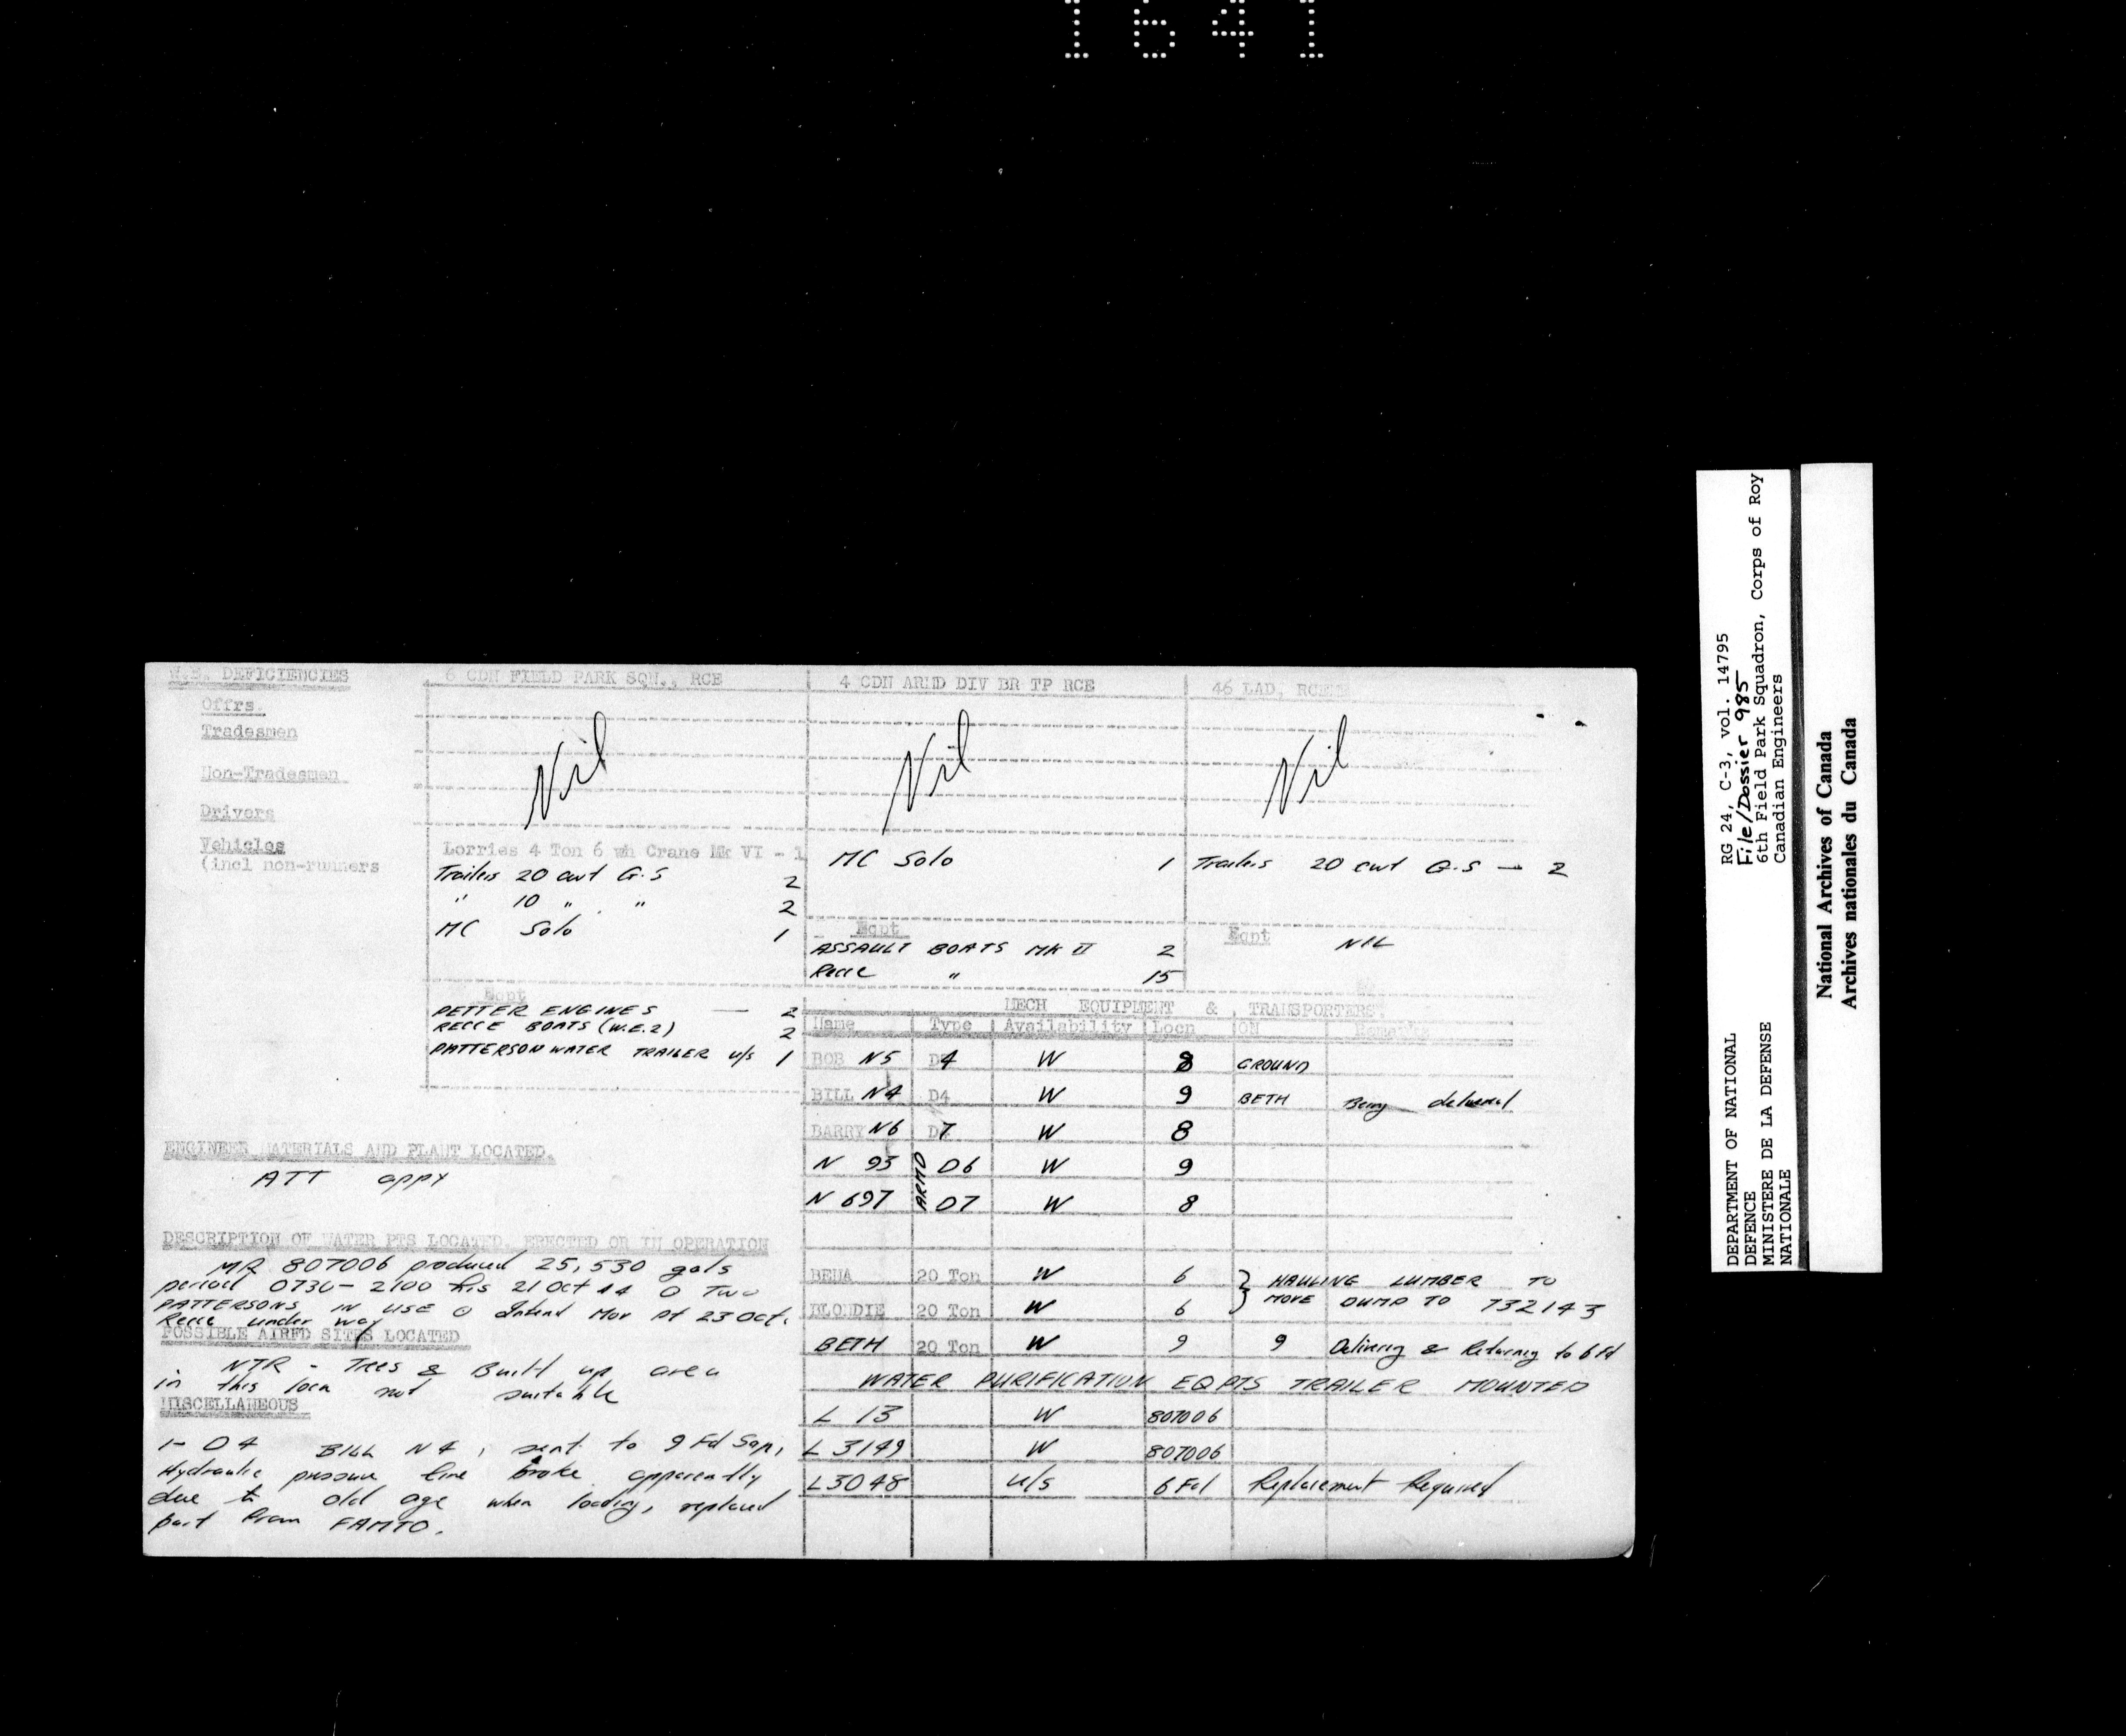 1641
W.E. DEFICIENCIES
6 CDN FIELD PARK SQN., RCE
4 CDN ARMD DIV BR TP RCE
46 LAD, RCEME
Offrs.
Tradesmen
Non-Tradesmen
Drivers
Nil
Nil
Nil
Vehicles
(incl non-runners
Lorries 4 Ton 6 wh Crane Mk VI - 1
Trailers 20 cwt G.S 2
" 10 " " 2
MC Solo 1
MC Solo 1
Trailers 20 cwt G.S — 2
Eqpt
ASSAULT BOATS MK II 2
Recce " 15
Eqpt NIL
Eqpt
PETTER ENGINES — 2
RECCE BOATS (W.E.2) 2
PATTERSON WATER TRAILER u/s 1
MECH EQUIPMENT & TRANSPORTERS
Name Type Availability Locn ON Remarks
BOB N5 D4 W 8 GROUND
BILL N4 D4 W 9 BETH Being delivered
BARRY N6 D7 W 8
N 93 ARMD D6 W 9
N 697 D7 W 8
BEDA 20 Ton W 6 } HAULING LUMBER TO
BLONDIE 20 Ton W 6 } MOVE DUMP TO 732143
BETH 20 Ton W 9 9 Delivering & Returning to 6 Fd
WATER PURIFICATION EQPTS TRAILER MOUNTED
L 13 W 807006
L 3149 W 807006
L3048 u/s 6 Fd Replacement Required
ENGINEER MATERIALS AND PLANT LOCATED.
ATT appx
DESCRIPTION OF WATER PTS LOCATED, ERECTED OR IN OPERATION
MR 807006 produced 25,530 gals
period 0730 - 2100 hrs 21 Oct 44 O Two
PATTERSONS IN USE O Intend Mov Pt 23 Oct.
Recce under way
POSSIBLE AIRFD SITES LOCATED
NTR - Trees & Built up area
in this locn not suitable
MISCELLANEOUS
1- D4 BILL N4, sent to 9 Fd Sqn,
Hydraulic pressure line broke apparently
due to old age when loading, replaced
part from FAMTO.
RG 24, C-3, vol. 14795
File/Dossier 985
6th Field Park Squadron, Corps of Roy
Canadian Engineers
DEPARTMENT OF NATIONAL
DEFENCE
MINISTERE DE LA DEFENSE
NATIONALE
National Archives of Canada
Archives nationales du Canada